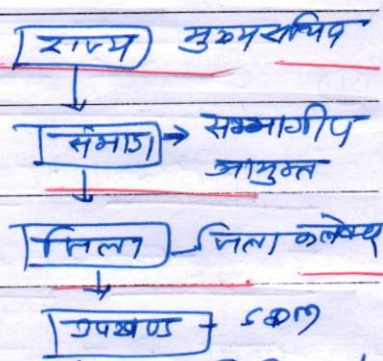 राज्य मुख्य सचिव
संभाग → सम्भागीय
आयुक्त
जिला - जिला कलेक्टर
उपखण्ड - SDM